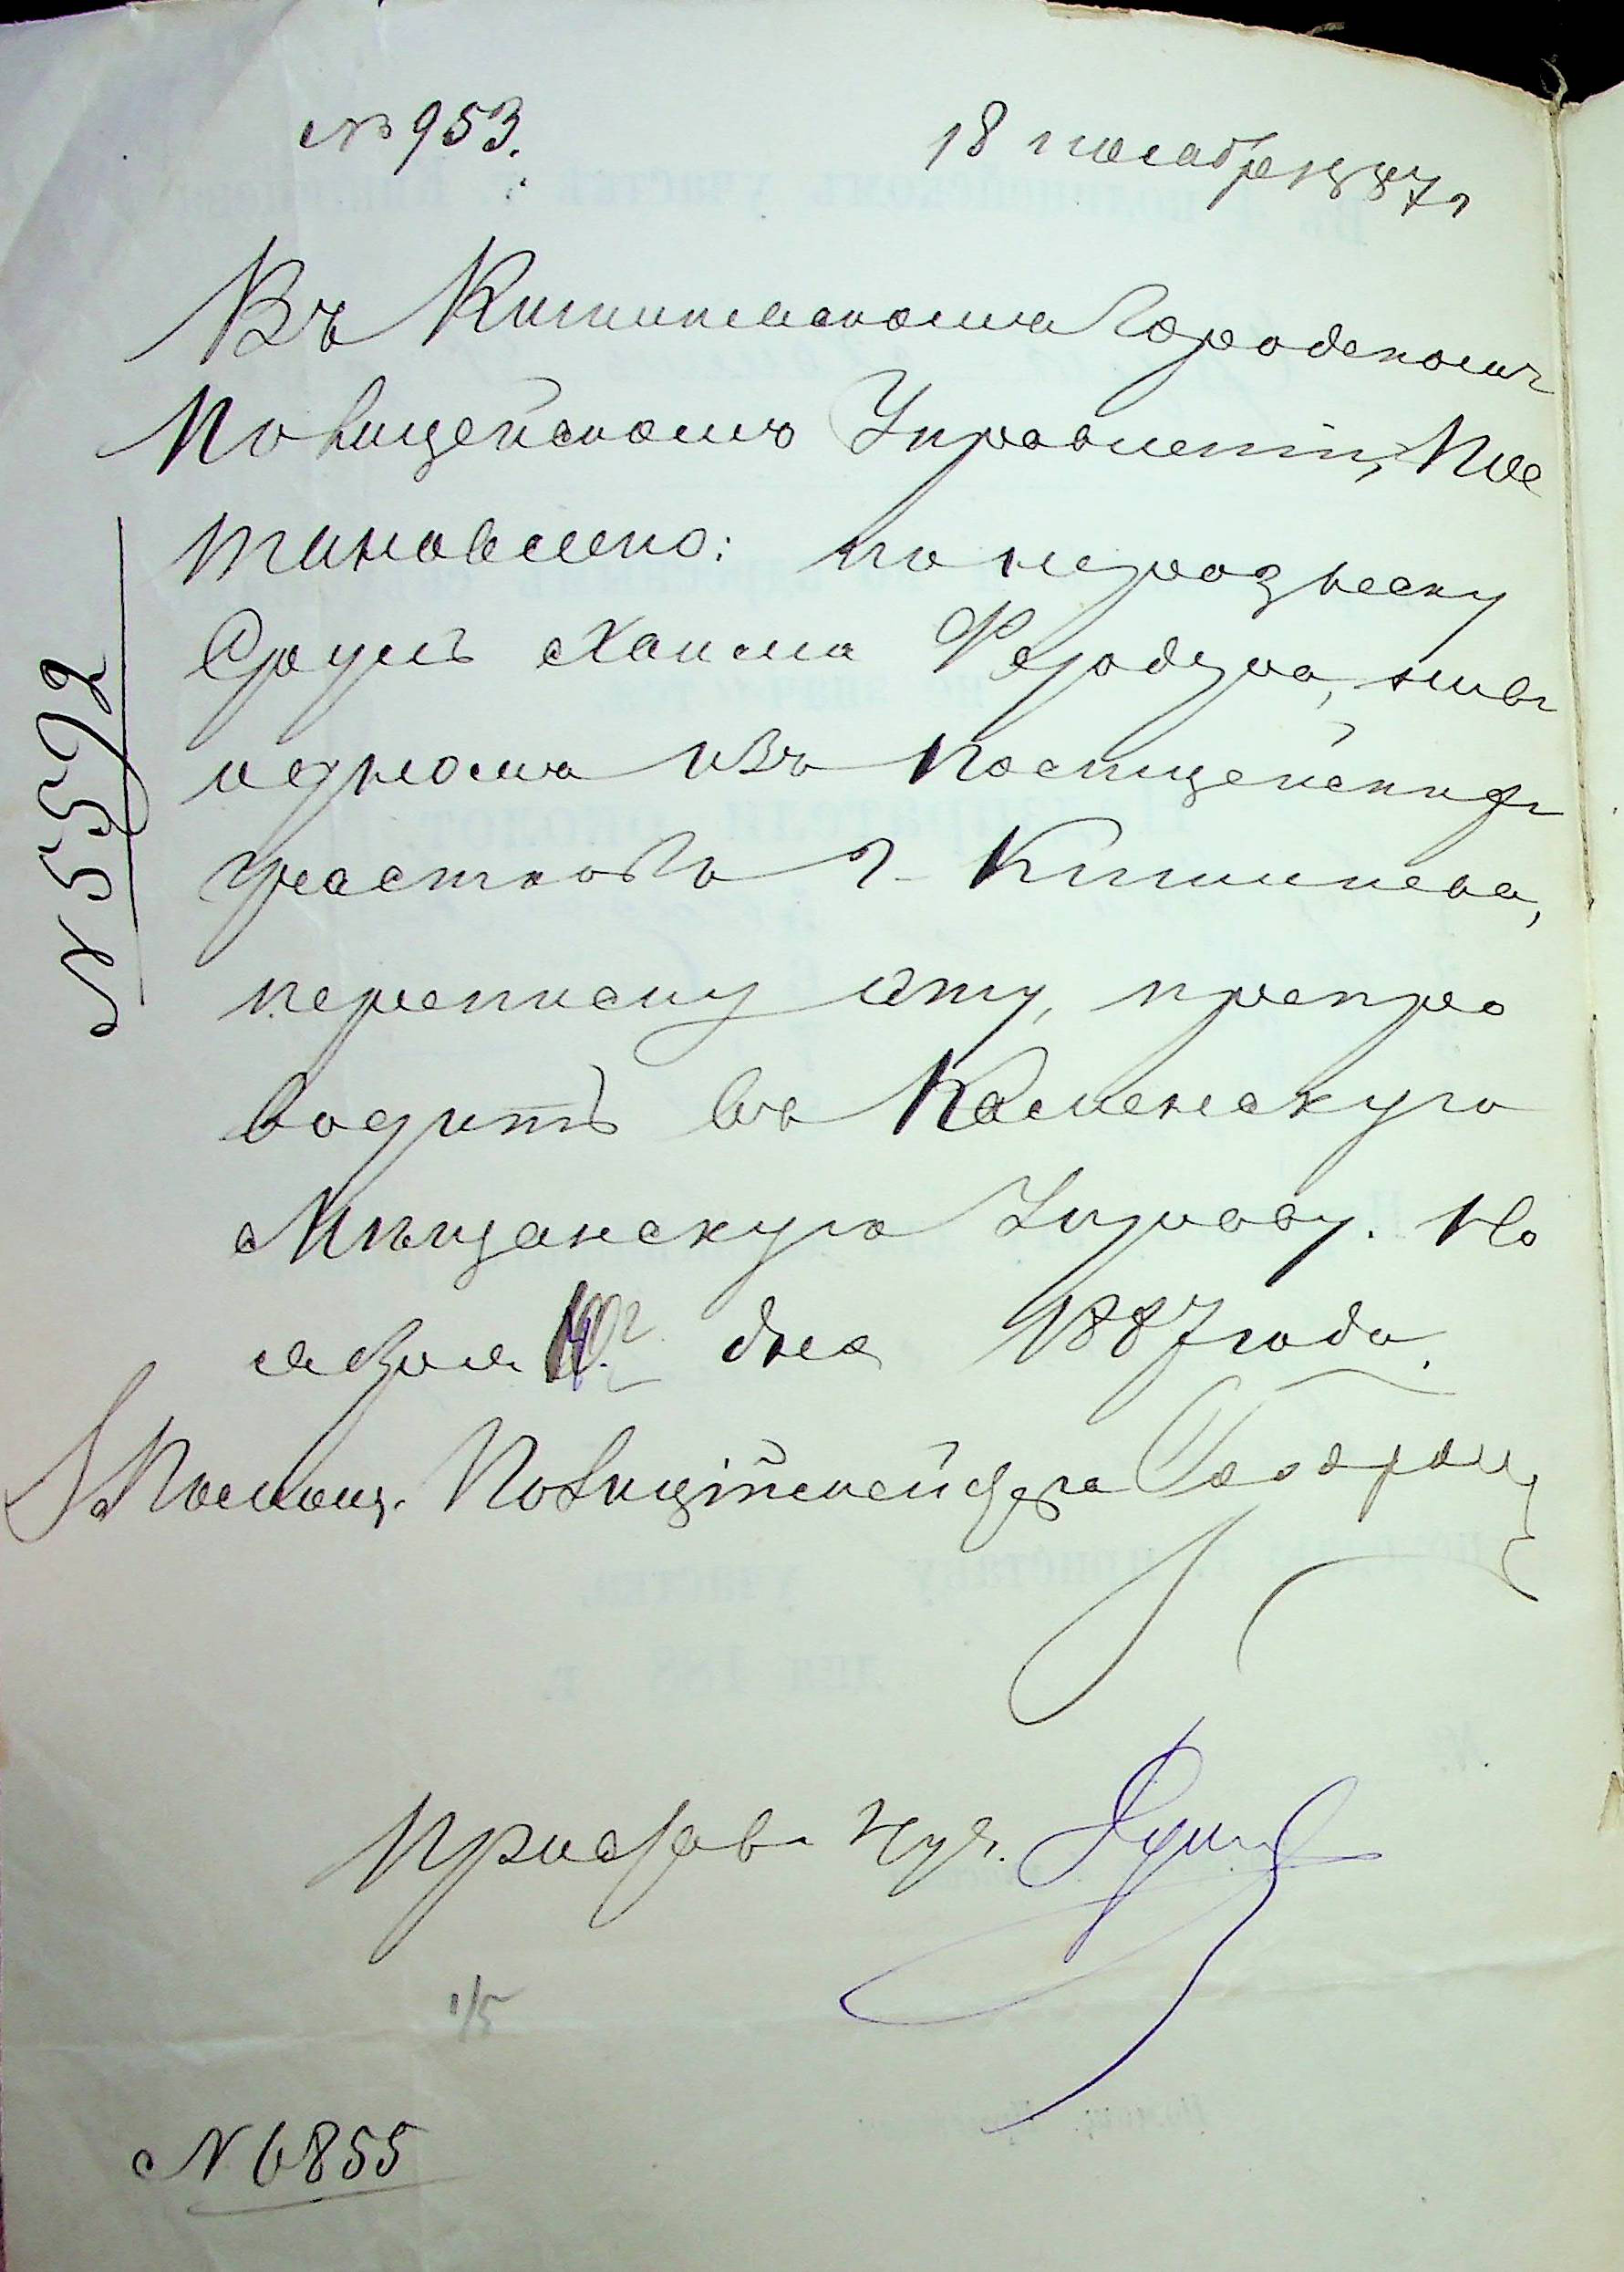 № 953.
18 ноября 1887 г
Въ Кишиневскомъ Городскомъ
Полицейскомъ Управленіи, Пос
тановлено: по нерозыску
Сруль Хаима Фердера, ни въ
одномъ изъ Полицейскихъ
участковъ г. Кишинева,
переписку эту, препро
водить въ Каменскую
Мѣщанскую Управу. Но
ября дня 1887 года.
Помощ. Полиціймейстера
Приставъ
№ 5592
1/5
№ 6855